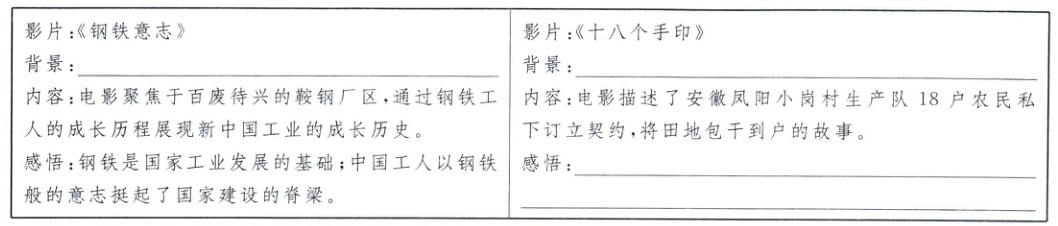 影片:《钢铁意志》
背景:
内容:电影聚焦于百废待兴的鞍钢厂区,通过钢铁工
人的成长历程展现新中国工业的成长历史。
感悟:钢铁是国家工业发展的基础;中国工人以钢铁
般的意志挺起了国家建设的脊梁。
影片:《十八个手印》
背景:
内容:电影描述了安徽凤阳小岗村生产队 18 户农民私
下订立契约,将田地包干到户的故事。
感悟: